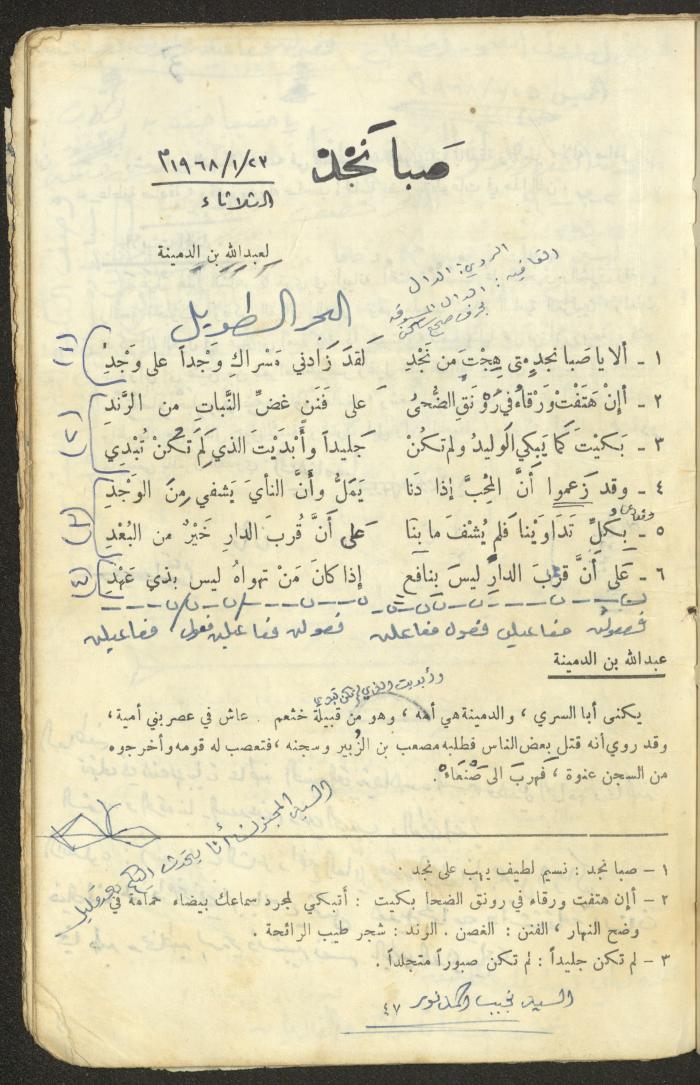 صَبا نَجْد
٢٣/١/١٩٦٨م
الثلاثاء
لعبدالله بن الدمينة
القافية: الدال
الروي: الدال
البحر الطويل
١ - ألا يا صَبا نجدٍ متى هِجْتَ من نَجْدِ لَقَدْ زَادني مَسْراكِ وَجْداً على وَجْدِ (١)
٢ - أإنْ هَتَفَتْ وَرْقاءُ في رَوْنَقِ الضُّحىٰ على فَنَنٍ غضِّ النَّباتِ من الرَّندِ
٣ - بَكَيْتَ كَما يَبكي الوليدُ ولم تكُنْ جَليداً وأَبْدَيْتَ الذي لَمْ تَكُنْ تُبْدِي (٢)
٤ - وقد زَعموا أنَّ المُحِبَّ إذا دَنا يَمَلُّ وأنَّ النأيَ يَشفي مِنَ الوَجْدِ
٥ - بِكلٍّ تَدَاوَيْنا فلم يُشْفَ ما بنَا عَلى أنَّ قُربَ الدارِ خَيْرٌ من البُعْدِ (٣)
٦ - عَلى أنَّ قُرْبَ الدارِ ليسَ بنافعٍ إذا كانَ مَنْ تهواهُ ليس بذي عَهْدِ (٤)
فعولن مفاعيلن فعولن مفاعلن فعولن مفاعيلن فعولن مفاعيلن
عبدالله بن الدمينة
وأبديت الذي لم تكن تبدي
يكنى أبا السري ، والدمينة هي أمه ، وهو من قبيلة خثعم . عاش في عصر بني أمية ،
وقد روي أنه قتل بعض الناس فطلبه مصعب بن الزُبير وسجنه ، فتعصب له قومه وأخرجوه
من السجن عنوة ، فهربَ الى صَنْعَاءَ .
١ - صبا نجد : نسيم لطيف يهب على نجد .
٢ - أإن هتفت ورقاء في رونق الضحا بكيت : أتبكي لمجرد سماعك بيضاء حمامة في
وضح النهار ، الفنن : الغصن . الرند : شجر طيب الرائحة .
٣ - لم تكن جليداً : لم تكن صبوراً متجلداً .
٤٧